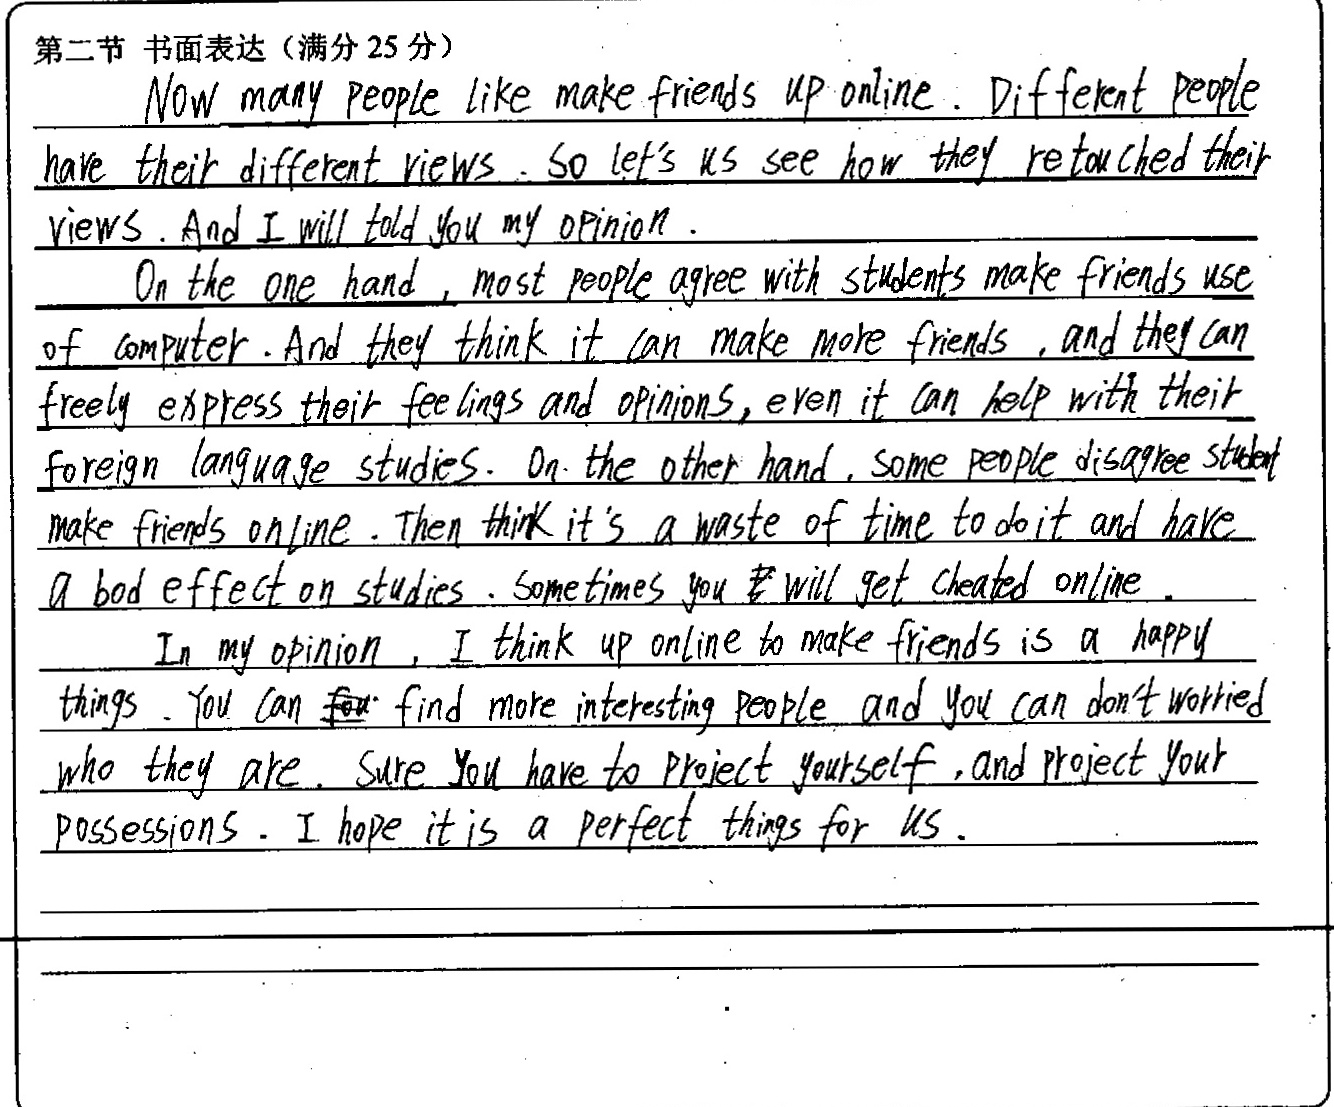 第二节 书面表达（满分 25 分）
Now many people like make friends up online. Different people
have their different views. So let's us see how they retouched their
views. And I will told you my opinion.
On the one hand, most people agree with students make friends use
of computer. And they think it can make more friends, and they can
freely express their feelings and opinions, even it can help with their
foreign language studies. On the other hand, some people disagree student
make friends online. Then think it's a waste of time to do it and have
a bod effect on studies. Sometimes you will get cheated online.
In my opinion, I think up online to make friends is a happy
things. You can find more interesting people and you can don't worried
who they are. Sure you have to project yourself, and project your
possessions. I hope it is a perfect things for us.